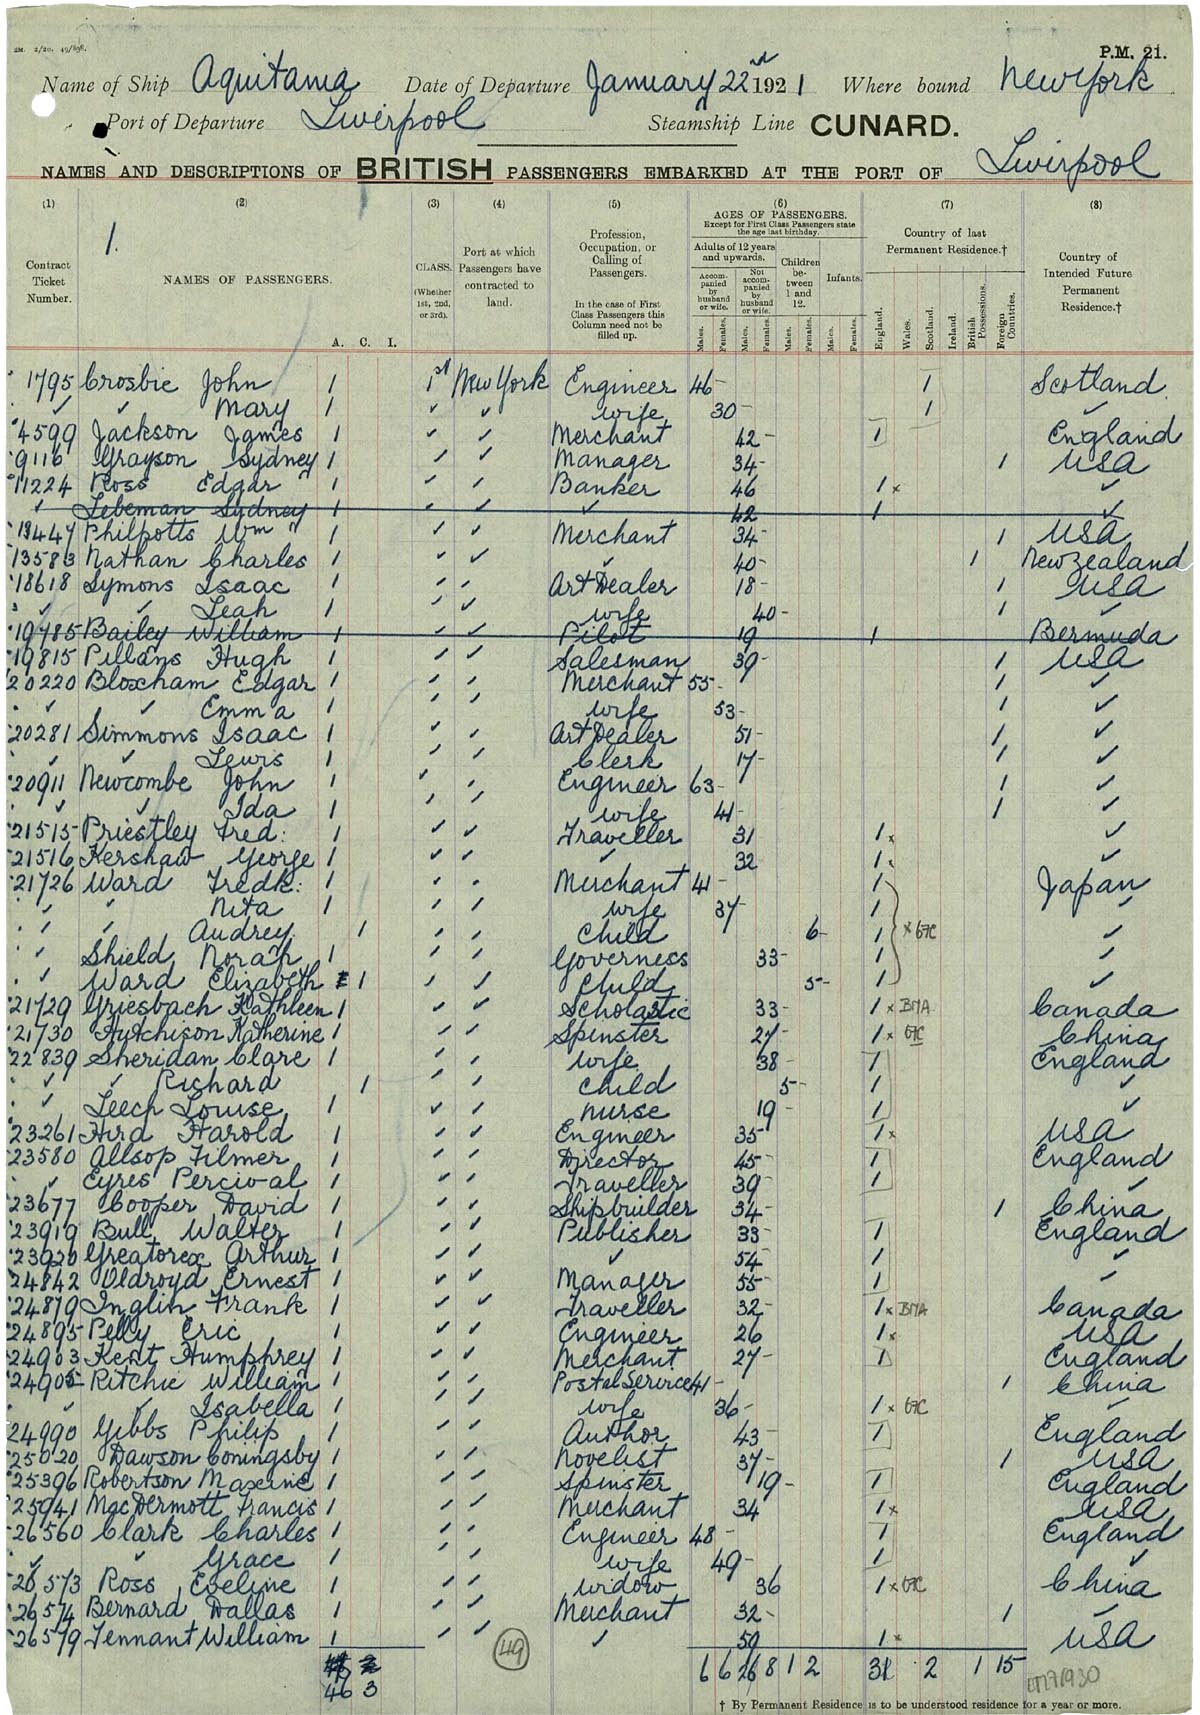 2M. 2/20. 49/896.
P.M. 21.
Name of Ship Aquitania Date of Departure January 22nd 1921 Where bound New York
Port of Departure Liverpool Steamship Line CUNARD.
NAMES AND DESCRIPTIONS OF BRITISH PASSENGERS EMBARKED AT THE PORT OF Liverpool
(1) (2) (3) (4) (5) (6) (7) (8)
1.
Contract Ticket Number.
NAMES OF PASSENGERS.
A. C. I.
CLASS. (Whether 1st, 2nd, or 3rd).
Port at which Passengers have contracted to land.
Profession, Occupation, or Calling of Passengers.
In the case of First Class Passengers this Column need not be filled up.
AGES OF PASSENGERS.
Except for First Class Passengers state the age last birthday.
Adults of 12 years and upwards.
Accompanied by husband or wife.
Not accompanied by husband or wife.
Children between 1 and 12.
Infants.
Males. Females. Males. Females. Males. Females. Males. Females.
Country of last Permanent Residence.†
England. Wales. Scotland. Ireland. British Possessions. Foreign Countries.
Country of Intended Future Permanent Residence.†
1795 Crosbie John 1 1st New York Engineer 46 1 Scotland
✓ ✓ Mary 1 ✓ ✓ wife 30 1 ✓
4599 Jackson James 1 ✓ ✓ Merchant 42 1 England
9116 Grayson Sydney 1 ✓ ✓ Manager 34 1 USA
11224 Ross Edgar 1 ✓ ✓ Banker 46 1 x ✓
✓ Lebeman Sydney 1 ✓ ✓ ✓ 42 1 ✓
13447 Philpotts Wm 1 ✓ ✓ Merchant 34 1 USA
13583 Nathan Charles 1 ✓ ✓ ✓ 40 1 New Zealand
18618 Symons Isaac 1 ✓ ✓ Art Dealer 18 1 USA
✓ ✓ Leah 1 ✓ ✓ wife 40 1 ✓
19485 Bailey William 1 ✓ ✓ Pilot 19 1 Bermuda
19815 Pillans Hugh 1 ✓ ✓ Salesman 39 1 USA
20220 Bloxham Edgar 1 ✓ ✓ Merchant 55 1 ✓
✓ ✓ Emma 1 ✓ ✓ wife 53 1 ✓
20281 Simmons Isaac 1 ✓ ✓ Art Dealer 51 1 ✓
✓ ✓ Lewis 1 ✓ ✓ Clerk 17 1 ✓
20911 Newcombe John 1 ✓ ✓ Engineer 63 1 ✓
✓ ✓ Ida 1 ✓ ✓ wife 41 1 ✓
21515 Priestley Fred: 1 ✓ ✓ Traveller 31 1 x ✓
21516 Kershaw George 1 ✓ ✓ ✓ 32 1 x ✓
21726 Ward Fredk: 1 ✓ ✓ Merchant 41 1 Japan
✓ ✓ Nita 1 ✓ ✓ wife 37 1 ✓
✓ ✓ Audrey 1 ✓ ✓ Child 6 1 x ✓
✓ Shield Norah 1 ✓ ✓ Governess 33 1 ✓
✓ Ward Elizabeth 1 ✓ ✓ Child 5 1 ✓
21729 Griesbach Kathleen 1 ✓ ✓ Scholastic 33 1 x BMA Canada
21730 Hutchison Katherine 1 ✓ ✓ Spinster 27 1 x China
22839 Sheridan Clare 1 ✓ ✓ wife 38 1 England
✓ ✓ Richard 1 ✓ ✓ Child 5 1 ✓
✓ Leech Louise 1 ✓ ✓ nurse 19 1 ✓
23261 Hird Harold 1 ✓ ✓ Engineer 35 1 x USA
23580 Allsop Filmer 1 ✓ ✓ Director 45 1 England
✓ Eyres Percival 1 ✓ ✓ Traveller 39 1 ✓
23677 Cooper David 1 ✓ ✓ Shipbuilder 34 1 China
23919 Bull Walter 1 ✓ ✓ Publisher 33 1 England
23920 Greatorex Arthur 1 ✓ ✓ ✓ 54 1 ✓
24842 Oldroyd Ernest 1 ✓ ✓ Manager 55 1 ✓
24879 Inglin Frank 1 ✓ ✓ Traveller 32 1 x BMA Canada
24895 Pelly Eric 1 ✓ ✓ Engineer 26 1 x USA
24903 Kent Humphrey 1 ✓ ✓ Merchant 27 1 England
24905 Ritchie William 1 ✓ ✓ Postal Service 41 1 China
✓ ✓ Isabella 1 ✓ ✓ wife 36 1 x ✓
24990 Gibbs Philip 1 ✓ ✓ Author 43 1 England
25020 Dawson Coningsby 1 ✓ ✓ Novelist 37 1 USA
25396 Robertson Maxine 1 ✓ ✓ Spinster 19 1 England
25941 MacDermott Francis 1 ✓ ✓ Merchant 34 1 x USA
26560 Clark Charles 1 ✓ ✓ Engineer 48 1 England
✓ ✓ Grace 1 ✓ ✓ wife 49 1 ✓
26573 Ross Eveline 1 ✓ ✓ widow 36 1 x China
26574 Bernard Dallas 1 ✓ ✓ Merchant 32 1 ✓
26579 Tennant William 1 ✓ ✓ ✓ 50 1 x USA
49 6 6 26 8 1 2 31 2 1 15
46 3
† By Permanent Residence is to be understood residence for a year or more.